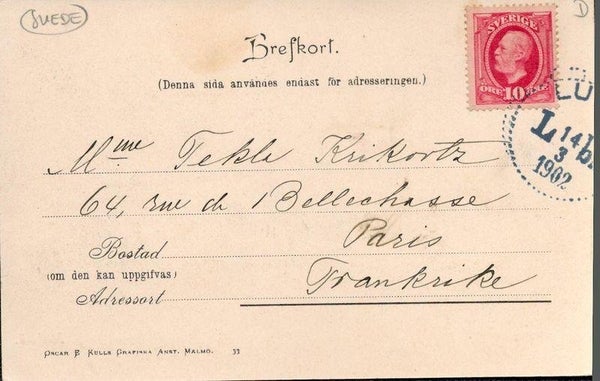 SUEDE
D
Brefkort.
(Denna sida användes endast för adresseringen.)
SVERIGE
ÖRE 10 ÖRE
LU
L 14
3
1902
Mme Tekla Krikortz
64, rue de Bellechasse
Paris
Bostad
(om den kan uppgifvas)
Frankrike
Adressort
OSCAR E. KULLS GRAFISKA ANST. MALMÖ. 33